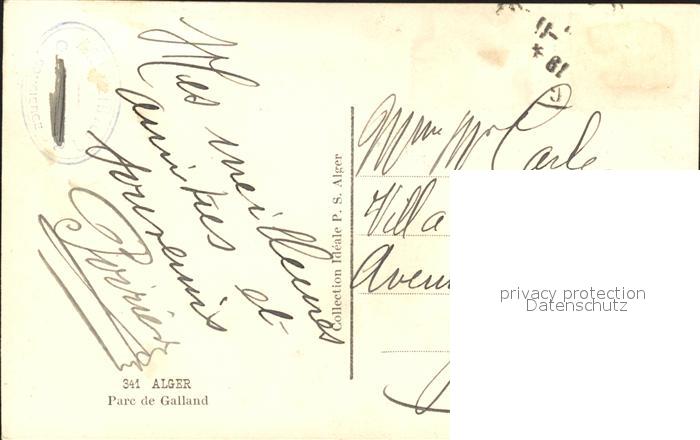 Mes meilleures
amitiés et
souvenirs
Poirier
341 ALGER
Parc de Galland
Collection Idéale P. S. Alger
Mme Mr Carle
Villa
Avenu
privacy protection
Datenschutz